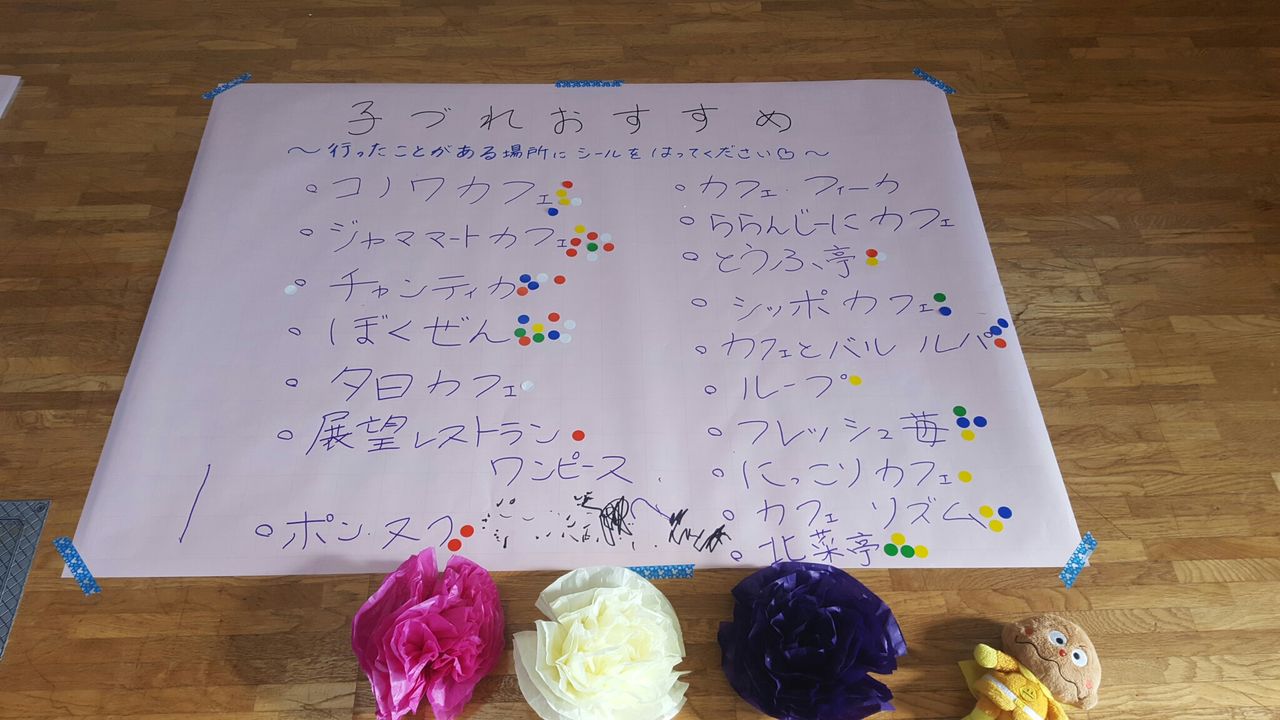 子づれおすすめ
～行ったことがある場所にシールをはってください♡～
○コノワカフェ
○ジャママートカフェ
○チャンティカ
○ぼくぜん
○夕日カフェ
○展望レストラン
ワンピース
○ポンヌフ
○カフェ・フィーカ
○ららんじーにカフェ
○とうふ亭
○シッポカフェ
○カフェとバル ルパ
○ループ
○フレッシュ苺
○にっこりカフェ
○カフェ リズム
○北菜亭